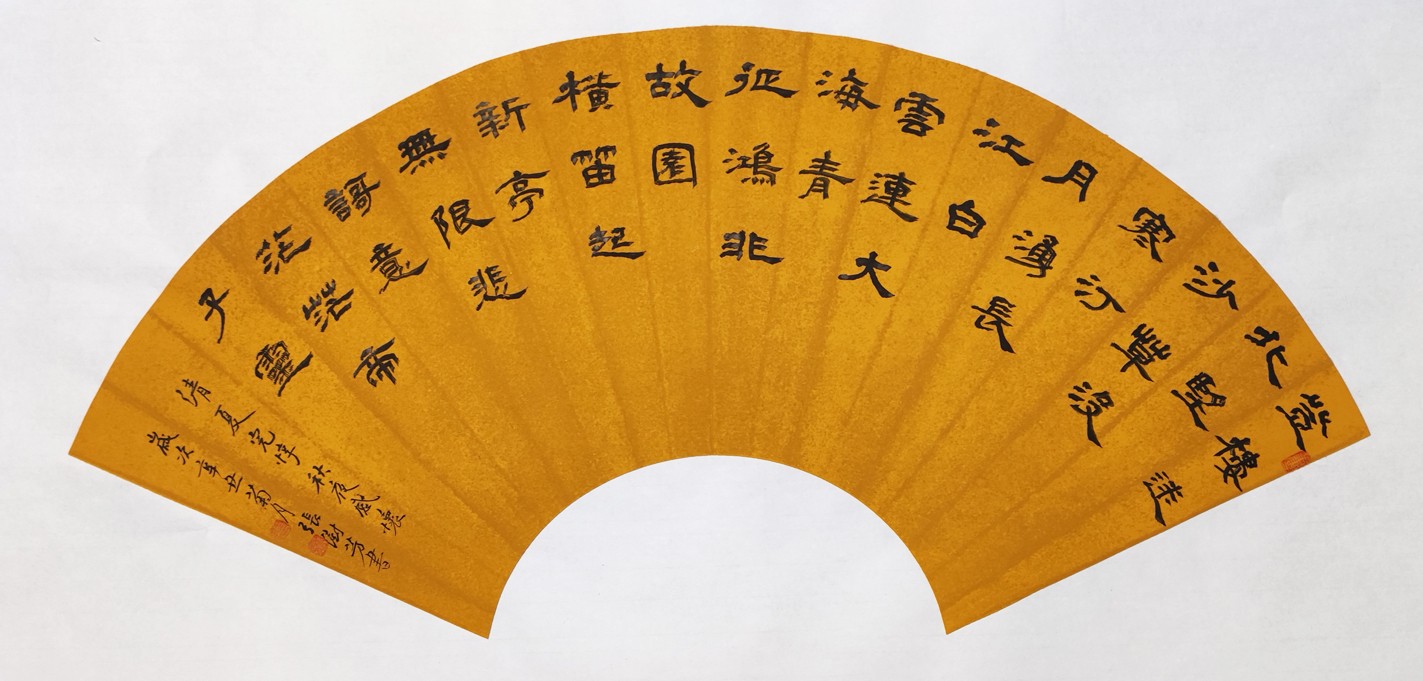 登樓迷
北望
沙草没
寒汀
月湧長
江白
雲連大
海青
征鴻非
故園
橫笛起
新亭
無限悲
謌意
茫茫帝
子靈
清夏完淳秋夜感懷
歲次辛丑菊月張樹芳書